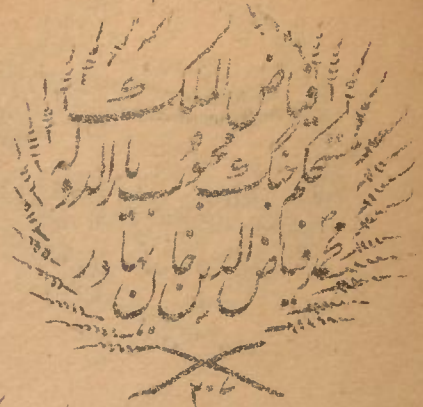 فیاض الملک
مستحکم جنگ محبوب یار الدولہ
محمد فیاض الدین خان بہادر